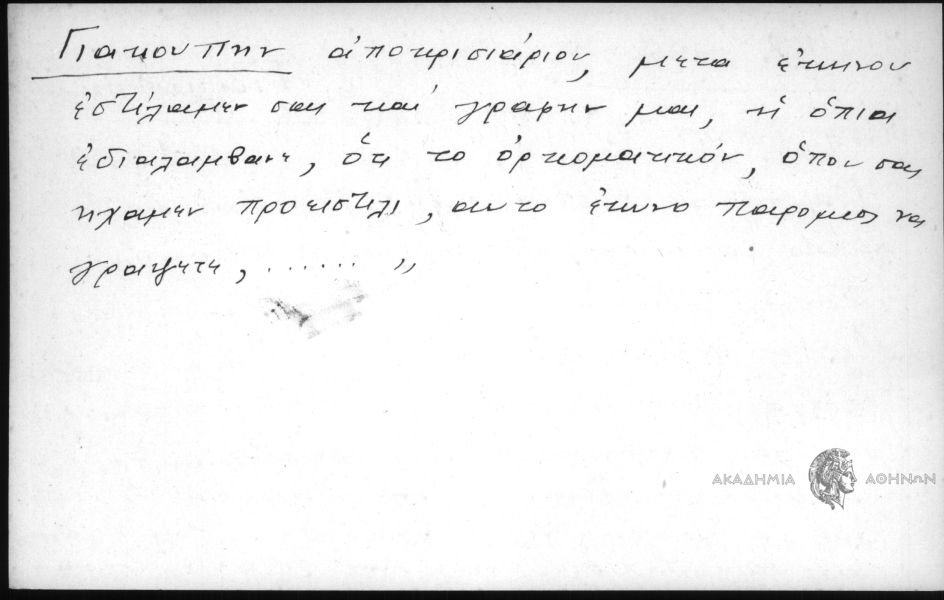 Γιακουπην ἀποκρισιάριον, μετα ἐκινου
ἐστίλαμεν σας καί γραφην μας, ἡ ὁπια
ἐδιαλαμβανε, ὅτι το ὁρκοματικόν, ὁπου σας
ηχαμεν προεστίλι, αυτο ἐκινο παρομιος να
γραψετε, ...... ,,
ΑΚΑΔΗΜΙΑ ΑΘΗΝΩΝ